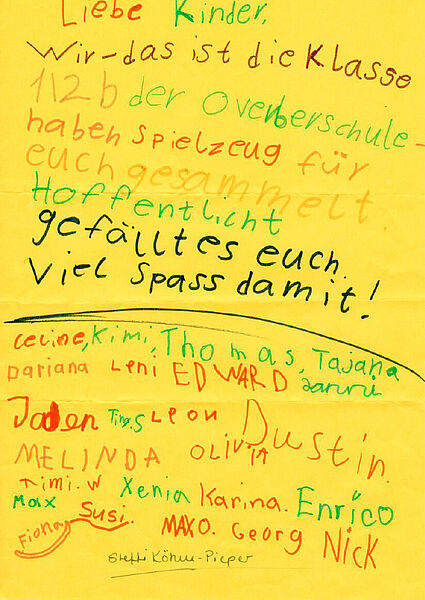 Liebe Kinder,
Wir - das ist die Klasse
1/2 b der Overbergschule -
haben Spielzeug für
euch gesammelt.
Hoffentlicht
gefälltes euch.
Viel Spass damit!
celine, Kimi, Thomas, Tajana
Dariana Leni EDWARD
Jaden Tim.S Leon Dustin.
MELINDA OLIVIA
Timi.W Xenia Karina. Enrico
Max Susi. MAXO. Georg Nick
Fiona
Steffi Köhne-Pieper